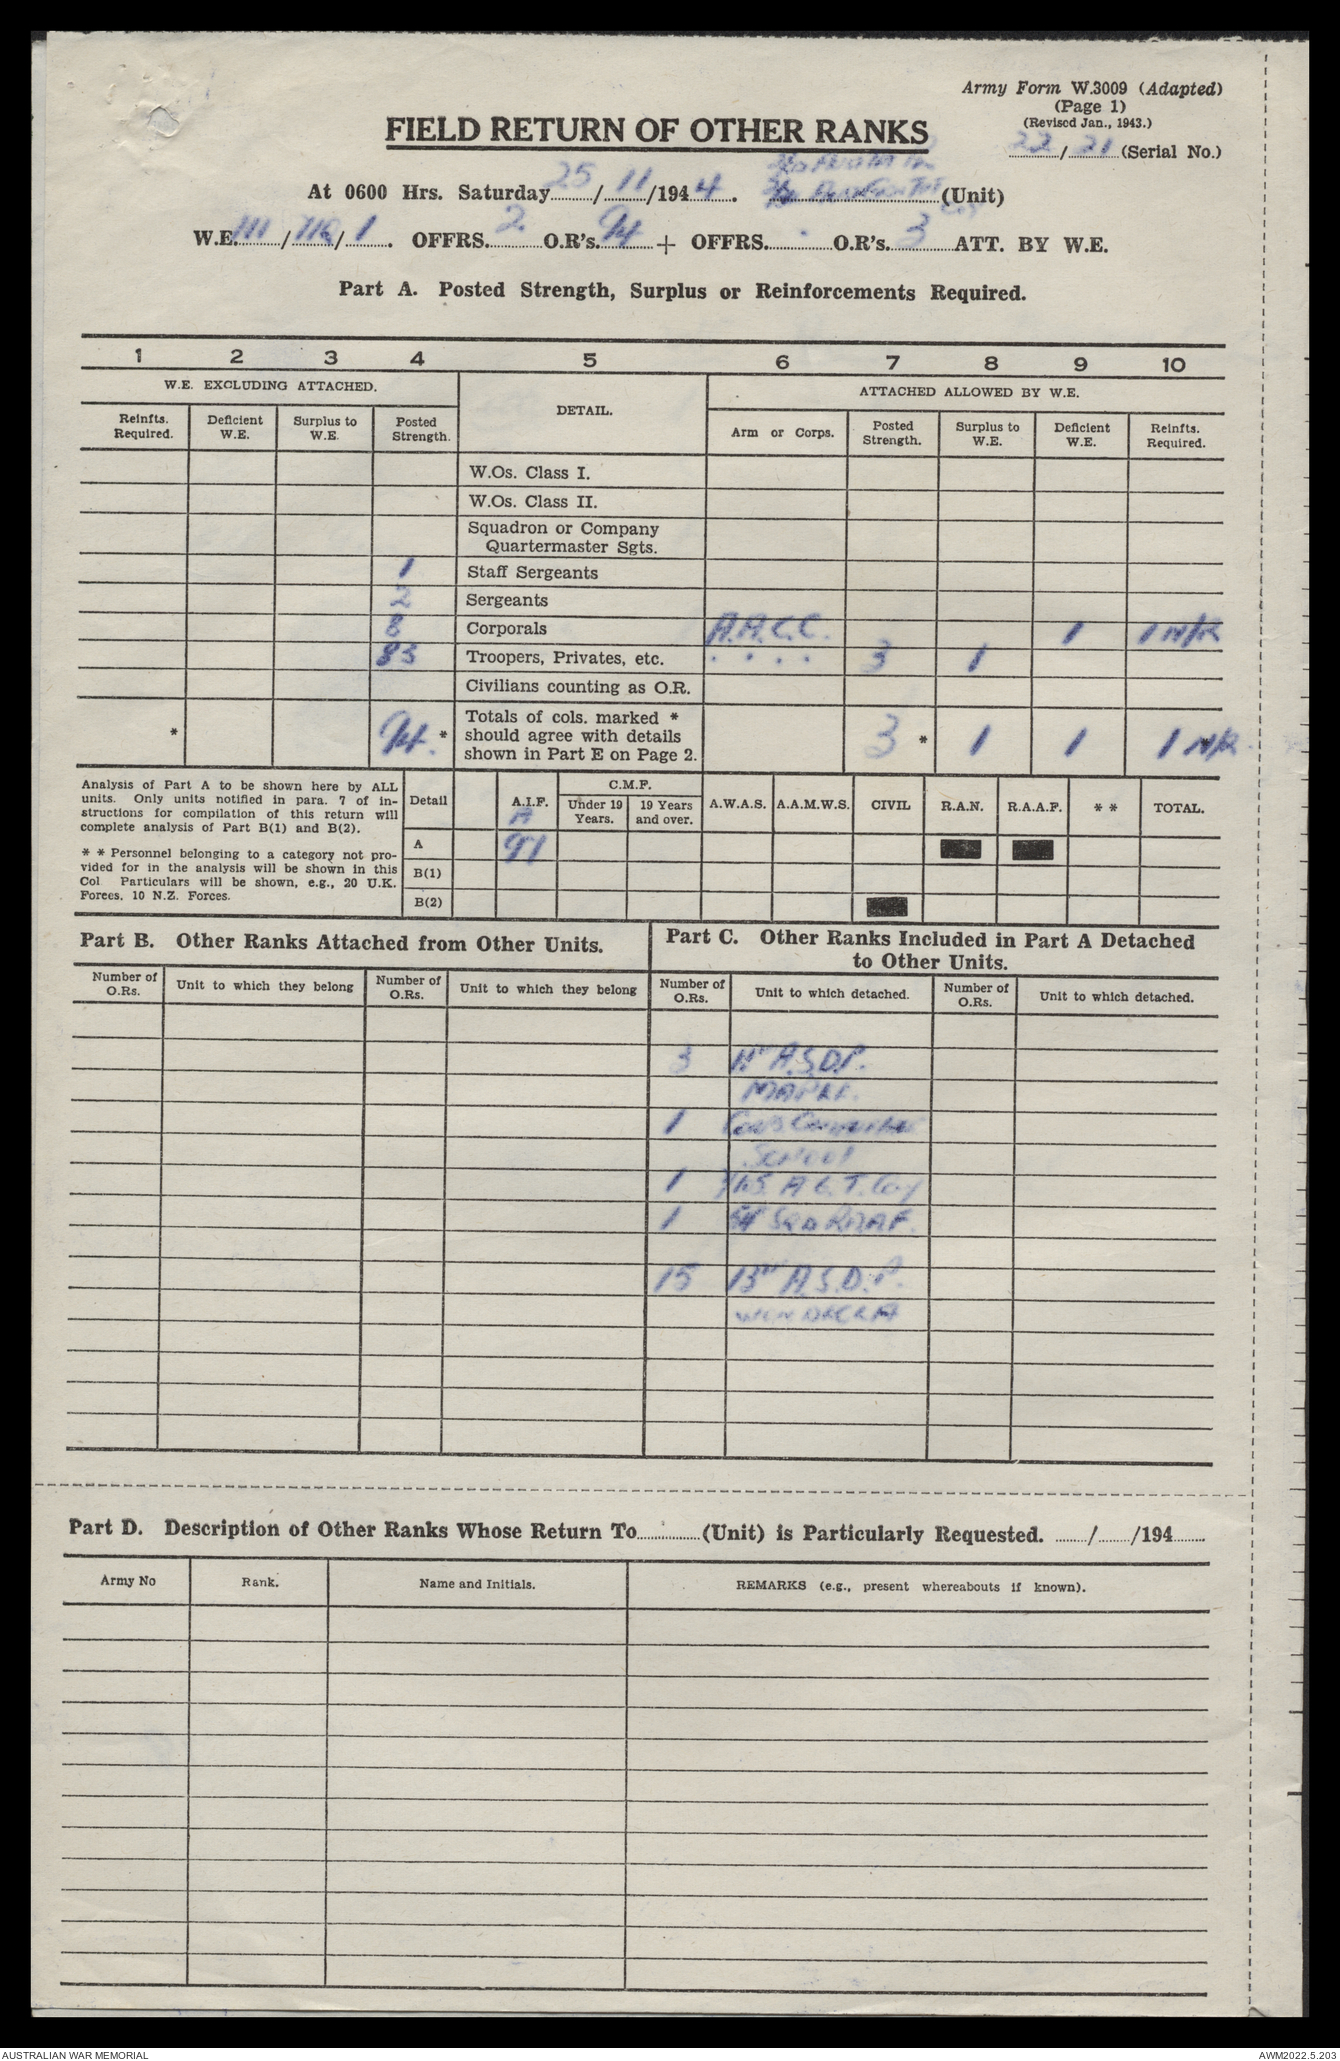 Army Form W.3009 (Adapted)
(Page 1)
(Revised Jan., 1943.)
FIELD RETURN OF OTHER RANKS
22/21 (Serial No.)
At 0600 Hrs. Saturday 25/11/1944. (Unit)
W.E. 111/ /1. OFFRS. 2 O.R's. 94 + OFFRS. . O.R's. 3 ATT. BY W.E.
Part A. Posted Strength, Surplus or Reinforcements Required.
1 2 3 4 5 6 7 8 9 10
W.E. EXCLUDING ATTACHED. DETAIL. ATTACHED ALLOWED BY W.E.
Reinfts. Required. Deficient W.E. Surplus to W.E. Posted Strength. Arm or Corps. Posted Strength. Surplus to W.E. Deficient W.E. Reinfts. Required.
W.Os. Class I.
W.Os. Class II.
Squadron or Company
Quartermaster Sgts.
1 Staff Sergeants
2 Sergeants
8 Corporals A.A.C.C. 1 1 N/R
83 Troopers, Privates, etc. . . . . 3 1
Civilians counting as O.R.
* 94. * Totals of cols. marked *
should agree with details
shown in Part E on Page 2. 3 * 1 1 1 N/R
Analysis of Part A to be shown here by ALL
units. Only units notified in para. 7 of in-
structions for compilation of this return will
complete analysis of Part B(1) and B(2).
* * Personnel belonging to a category not pro-
vided for in the analysis will be shown in this
Col Particulars will be shown, e.g., 20 U.K.
Forces, 10 N.Z. Forces.
Detail A.I.F. C.M.F. Under 19 Years. 19 Years and over. A.W.A.S. A.A.M.W.S. CIVIL R.A.N. R.A.A.F. * * TOTAL.
A
A 97
B(1)
B(2)
Part B. Other Ranks Attached from Other Units.
Part C. Other Ranks Included in Part A Detached
to Other Units.
Number of O.Rs. Unit to which they belong Number of O.Rs. Unit to which they belong Number of O.Rs. Unit to which detached. Number of O.Rs. Unit to which detached.
3 A.S.D.P.
1
SCHOOL
1 A G. T. Coy
1 SQD RAAF.
15 13TH A.S.D.P.
Part D. Description of Other Ranks Whose Return To (Unit) is Particularly Requested. / /194
Army No Rank. Name and Initials. REMARKS (e.g., present whereabouts if known).
AUSTRALIAN WAR MEMORIAL AWM2022.5.203